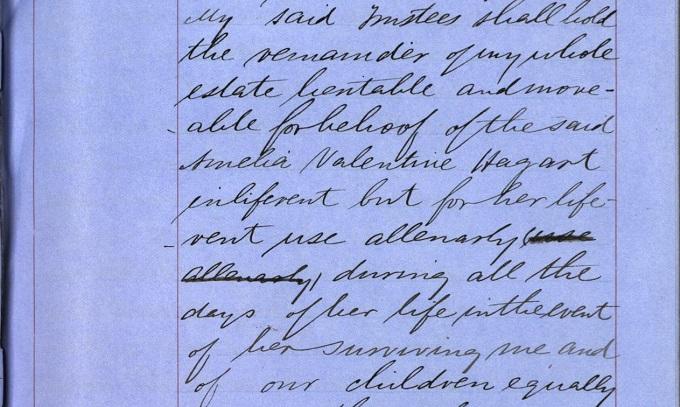 My said Trustees shall hold
the remainder of my whole
estate heritable and move-
able for behoof of the said
Amelia Valentine Hagart
in liferent but for her life-
rent use allenarly (use
allenarly) during all the
days of her life in the event
of her surviving me and
of our children equally